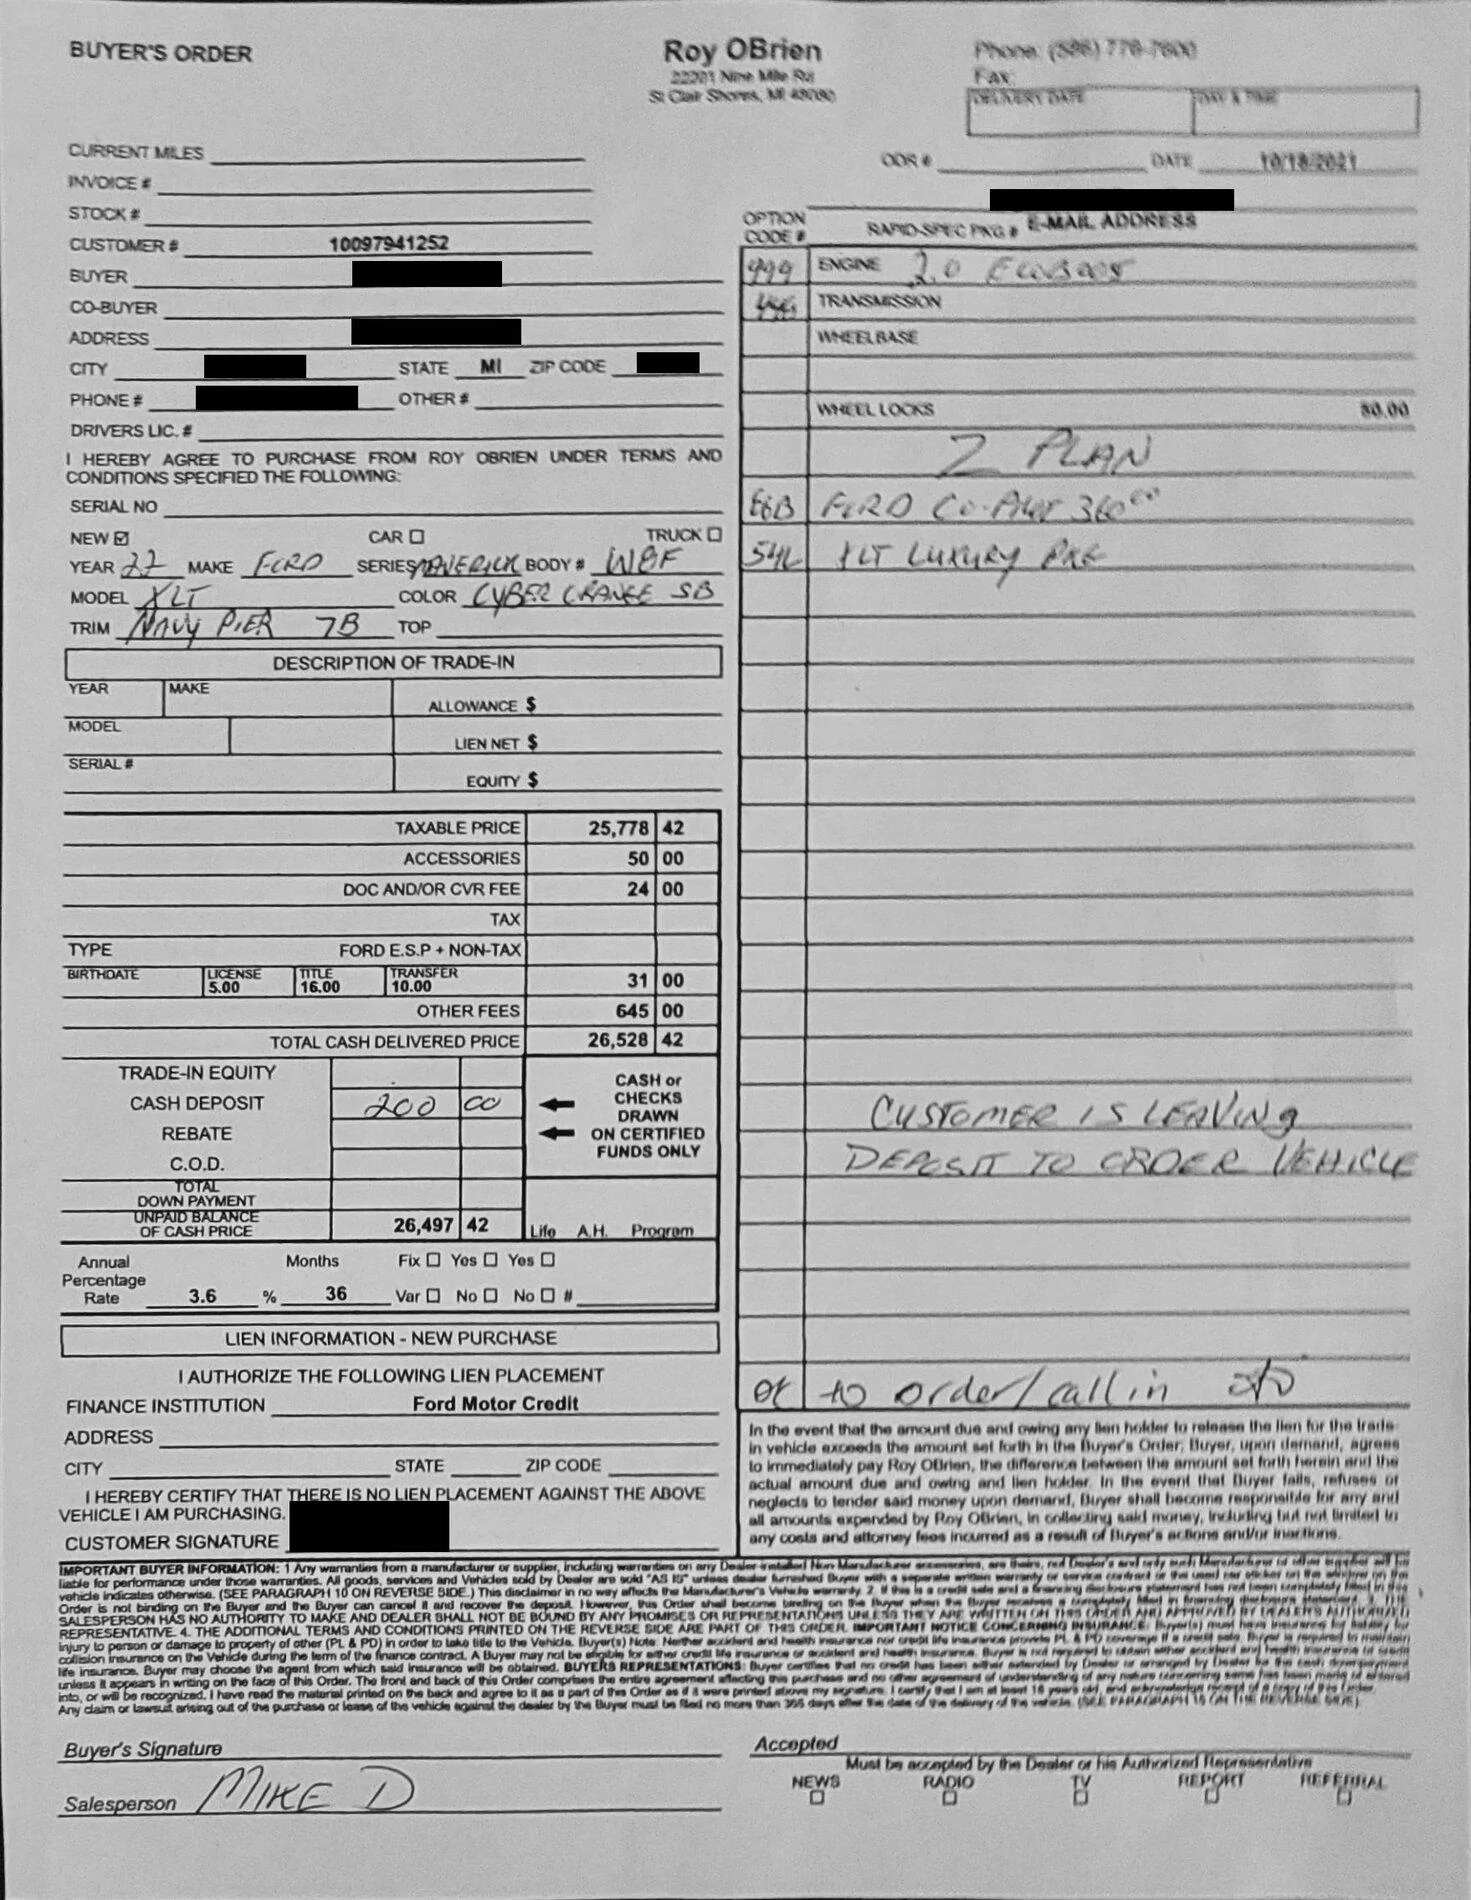 BUYER'S ORDER
Roy OBrien
22201 Nine Mile Rd
St Clair Shores, MI 48080
Phone: (586) 776-7600
Fax:
DELIVERY DATE
DAY & TIME
CURRENT MILES
ODR #
DATE 10/18/2021
INVOICE #
STOCK #
CUSTOMER # 10097941252
BUYER
CO-BUYER
ADDRESS
CITY STATE MI ZIP CODE
PHONE # OTHER #
DRIVERS LIC. #
I HEREBY AGREE TO PURCHASE FROM ROY OBRIEN UNDER TERMS AND
CONDITIONS SPECIFIED THE FOLLOWING:
SERIAL NO
NEW ☑ CAR ☐ TRUCK ☐
YEAR 22 MAKE FORD SERIES MAVERICK BODY # W8F
MODEL XLT COLOR CYBER ORANGE SB
TRIM NAVY PIER 7B TOP
DESCRIPTION OF TRADE-IN
YEAR MAKE
ALLOWANCE $
MODEL
LIEN NET $
SERIAL #
EQUITY $
TAXABLE PRICE 25,778 42
ACCESSORIES 50 00
DOC AND/OR CVR FEE 24 00
TAX
TYPE FORD E.S.P + NON-TAX
BIRTHDATE LICENSE 5.00 TITLE 16.00 TRANSFER 10.00 31 00
OTHER FEES 645 00
TOTAL CASH DELIVERED PRICE 26,528 42
TRADE-IN EQUITY
CASH DEPOSIT 200 00
REBATE
C.O.D.
CASH or
CHECKS
DRAWN
ON CERTIFIED
FUNDS ONLY
TOTAL
DOWN PAYMENT
UNPAID BALANCE
OF CASH PRICE 26,497 42
Life A.H. Program
Annual
Percentage
Rate 3.6 %
Months
36
Fix ☐ Yes ☐ Yes ☐
Var ☐ No ☐ No ☐ #
LIEN INFORMATION - NEW PURCHASE
I AUTHORIZE THE FOLLOWING LIEN PLACEMENT
FINANCE INSTITUTION Ford Motor Credit
ADDRESS
CITY STATE ZIP CODE
I HEREBY CERTIFY THAT THERE IS NO LIEN PLACEMENT AGAINST THE ABOVE
VEHICLE I AM PURCHASING.
CUSTOMER SIGNATURE
OPTION
CODE #
RAPID-SPEC PKG # E-MAIL ADDRESS
999 ENGINE 2.0 ECOBOOST
TRANSMISSION
WHEELBASE
WHEEL LOCKS 50.00
Z PLAN
FORD CO-PILOT 360
54L XLT LUXURY PKG
CUSTOMER IS LEAVING
DEPOSIT TO ORDER VEHICLE
ok to order/call in
In the event that the amount due and owing any lien holder to release the lien for the trade
in vehicle exceeds the amount set forth in the Buyer's Order, Buyer, upon demand, agrees
to immediately pay Roy OBrien, the difference between the amount set forth herein and the
actual amount due and owing and lien holder. In the event that Buyer fails, refuses or
neglects to tender said money upon demand, Buyer shall become responsible for any and
all amounts expended by Roy OBrien, in collecting said money, including but not limited to
any costs and attorney fees incurred as a result of Buyer's actions and/or inactions.
IMPORTANT BUYER INFORMATION: 1 Any warranties from a manufacturer or supplier, including warranties on any Dealer-installed Non-Manufacturer accessories, are theirs, not Dealer's and only such Manufacturer or other supplier will be
liable for performance under those warranties. All goods, services and Vehicles sold by Dealer are sold "AS IS" unless dealer furnished Buyer with a separate written warranty or service contract or the used car sticker on the window on the
vehicle indicates otherwise. (SEE PARAGRAPH 10 ON REVERSE SIDE.) This disclaimer in no way affects the Manufacturer's Vehicle warranty. 2. If this is a credit sale and a financing disclosure statement has not been completely filled in
Order is not binding on the Buyer and the Buyer can cancel it and recover the deposit. However, this Order shall become binding on the Buyer when the Buyer receives a completely filled in financing disclosure statement. 3.
SALESPERSON HAS NO AUTHORITY TO MAKE AND DEALER SHALL NOT BE BOUND BY ANY PROMISES OR REPRESENTATIONS UNLESS THEY ARE WRITTEN ON THIS ORDER AND APPROVED BY DEALER'S AUTHORIZED
REPRESENTATIVE. 4. THE ADDITIONAL TERMS AND CONDITIONS PRINTED ON THE REVERSE SIDE ARE PART OF THIS ORDER. IMPORTANT NOTICE CONCERNING INSURANCE: Buyer(s) must have insurance for liability for
injury to person or damage to property of other (PL & PD) in order to take title to the Vehicle. Buyer(s) Note: Neither accident and health insurance nor credit life insurance provide PL & PD coverage. If a credit sale, Buyer is required to maintain
collision insurance on the Vehicle during the term of the finance contract. A Buyer may not be eligible for either credit life insurance or accident and health insurance. Buyer is not required to obtain either accident and health insurance or credit
life insurance. Buyer may choose the agent from which said insurance will be obtained. BUYERS REPRESENTATIONS: Buyer certifies that no credit has been either extended by Dealer or arranged by Dealer for the cash downpayment
unless it appears in writing on the face of this Order. The front and back of this Order comprises the entire agreement affecting this purchase and no other agreement of understanding of any nature concerning same has been made or entered
into, or will be recognized. I have read the material printed on the back and agree to it as a part of this Order as if it were printed above my signature. I certify that I am at least 18 years old, and acknowledge receipt of a copy of this Order.
Any claim or lawsuit arising out of the purchase or lease of the vehicle against the dealer by the Buyer must be filed no more than 365 days after the date of the delivery of the vehicle. (SEE PARAGRAPH 15 ON THE REVERSE SIDE)
Buyer's Signature
Accepted
Must be accepted by the Dealer or his Authorized Representative
Salesperson MIKE D
NEWS ☐ RADIO ☐ TV ☐ REPORT ☐ REFERRAL ☐